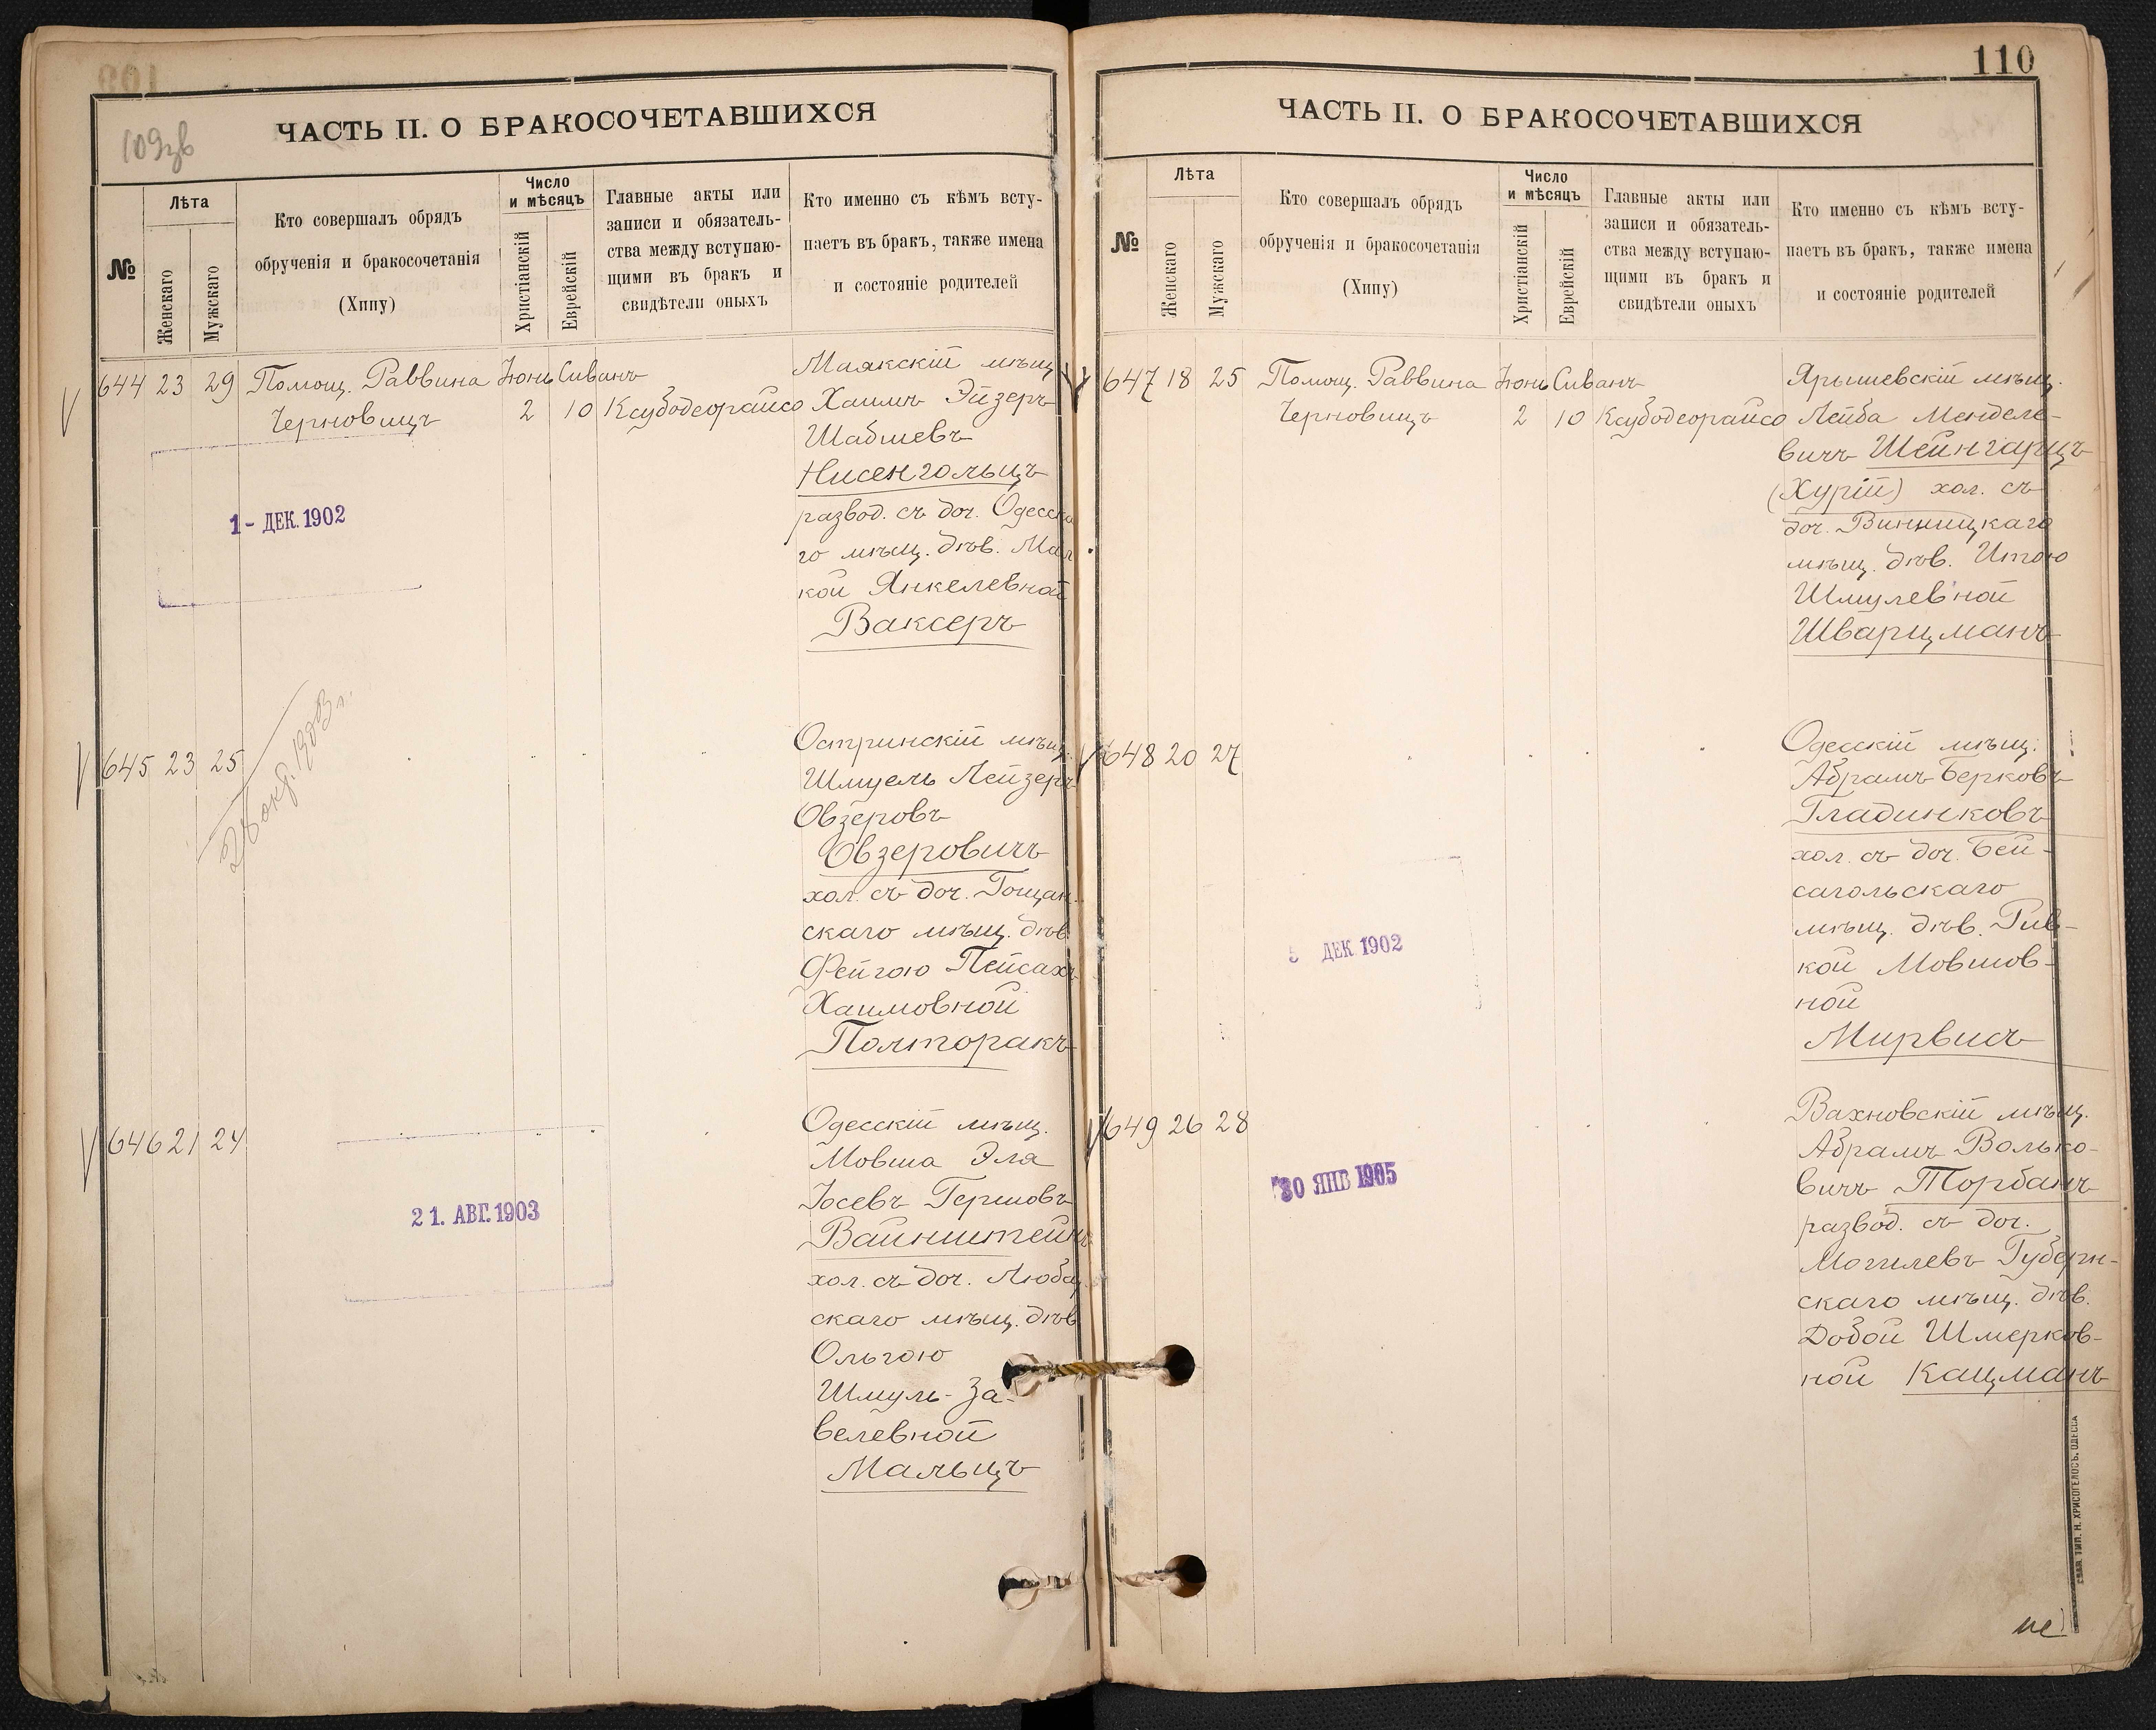 109зв
ЧАСТЬ II. О БРАКОСОЧЕТАВШИХСЯ
№
Лѣта
Женскаго
Мужскаго
Кто совершалъ обрядъ
обрученія и бракосочетанія
(Хипу)
Число
и мѣсяцъ
Христіанскій
Еврейскій
Главные акты или
записи и обязатель-
ства между вступаю-
щими въ бракъ и
свидѣтели оныхъ
Кто именно съ кѣмъ всту-
паетъ въ бракъ, также имена
и состояніе родителей
644 23 29 Помощ. Раввина Іюнь Сиванъ
Черновицъ 2 10 Ксубодеорайсо
Маякскій мѣщ
Хаимъ Эйзеръ
Шабшевъ
Нисенгольцъ
развод. съ доч. Одесска
го мѣщ. дѣв. Мал
кой Янкелевной
Ваксеръ
1 - ДЕК. 1902
645 23 25
28 окт. 1903 г.
Остринскій мѣщ.
Шмуель Лейзеръ
Овзеровъ
Овзеровичъ
хол. съ доч. Гощан
скаго мѣщ. дѣв
Фейгою Пейсахъ
Хаимовной
Полторакъ
646 21 24
Одесскій мѣщ.
Мовша Эля
Іосевъ Гершовъ
Вайнштейнъ
хол. съ доч. Любар
скаго мѣщ. дѣв
Ольгою
Шмуль-За-
велевной
Мальцъ
21. АВГ. 1903
110
ЧАСТЬ II. О БРАКОСОЧЕТАВШИХСЯ
№
Лѣта
Женскаго
Мужскаго
Кто совершалъ обрядъ
обрученія и бракосочетанія
(Хипу)
Число
и мѣсяцъ
Христіанскій
Еврейскій
Главные акты или
записи и обязатель-
ства между вступаю-
щими въ бракъ и
свидѣтели оныхъ
Кто именно съ кѣмъ всту-
паетъ въ бракъ, также имена
и состояніе родителей
647 18 25 Помощ. Раввина Іюнь Сиванъ
Черновицъ 2 10 Ксубодеорайсо
Ярышевскій мѣщ.
Лейба Менделе-
вичъ Шейнгарцъ
(Хурій) хол. съ
доч. Винницкаго
мѣщ. дѣв. Итою
Шмулевной
Шварцманъ
648 20 27
Одесскій мѣщ.
Абрамъ Берковъ
Гладинковъ
хол. съ доч. Бей-
сагольскаго
мѣщ. дѣв. Рив-
кой Мовшов-
ной
Мирвисъ
5 ДЕК 1902
649 26 28
Вахновскій мѣщ.
Абрамъ Волько-
вичъ Торбанъ
развод. съ доч.
Могилевъ Губерн-
скаго мѣщ. дѣв.
Добой Шмерков-
ной Кацманъ
30 ЯНВ 1905
ТИП. Н. ХРИСОГЕЛОСЪ, ОДЕССА